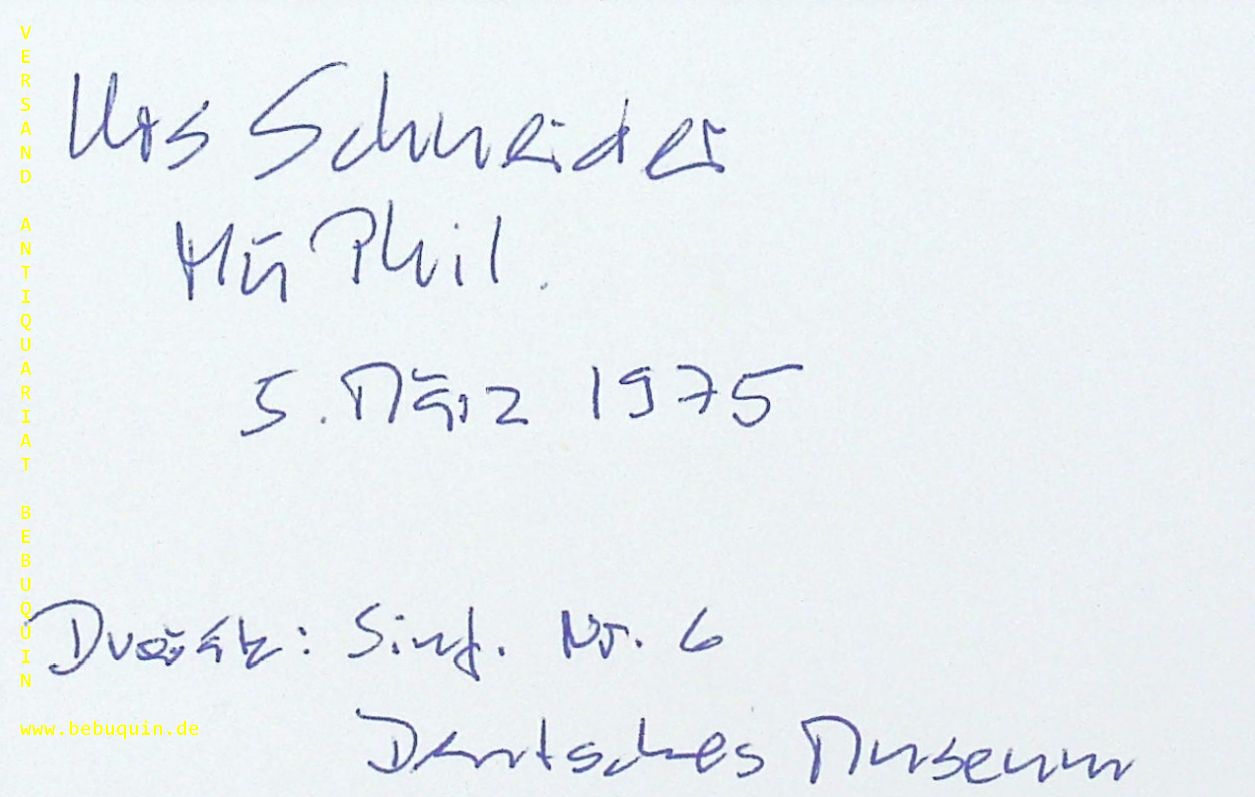 Urs Schneider
Mü Phil.
5. März 1975
Dvořák: Sinf. Nr. 6
Deutsches Museum
VERSAND ANTIQUARIAT BEBUQUIN
www.bebuquin.de